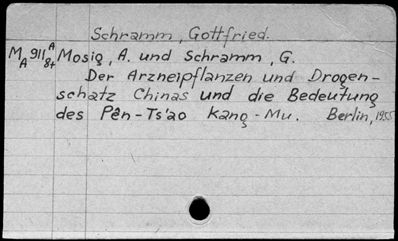 Schramm, Gottfried.
MA 911 A84 Mosig, A. und Schramm, G.
Der Arzneipflanzen und Drogen-
schatz Chinas und die Bedeutung
des Pên-Ts'ao Kang-Mu. Berlin, 1955